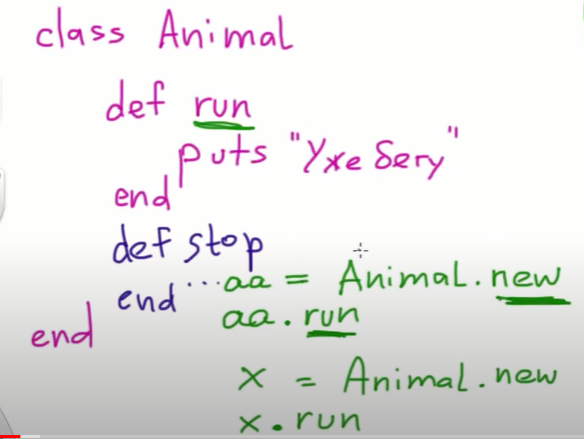 class Animal
def run
puts "Уже бегу"
end
def stop
end ...
end
aa = Animal.new
aa.run
x = Animal.new
x.run